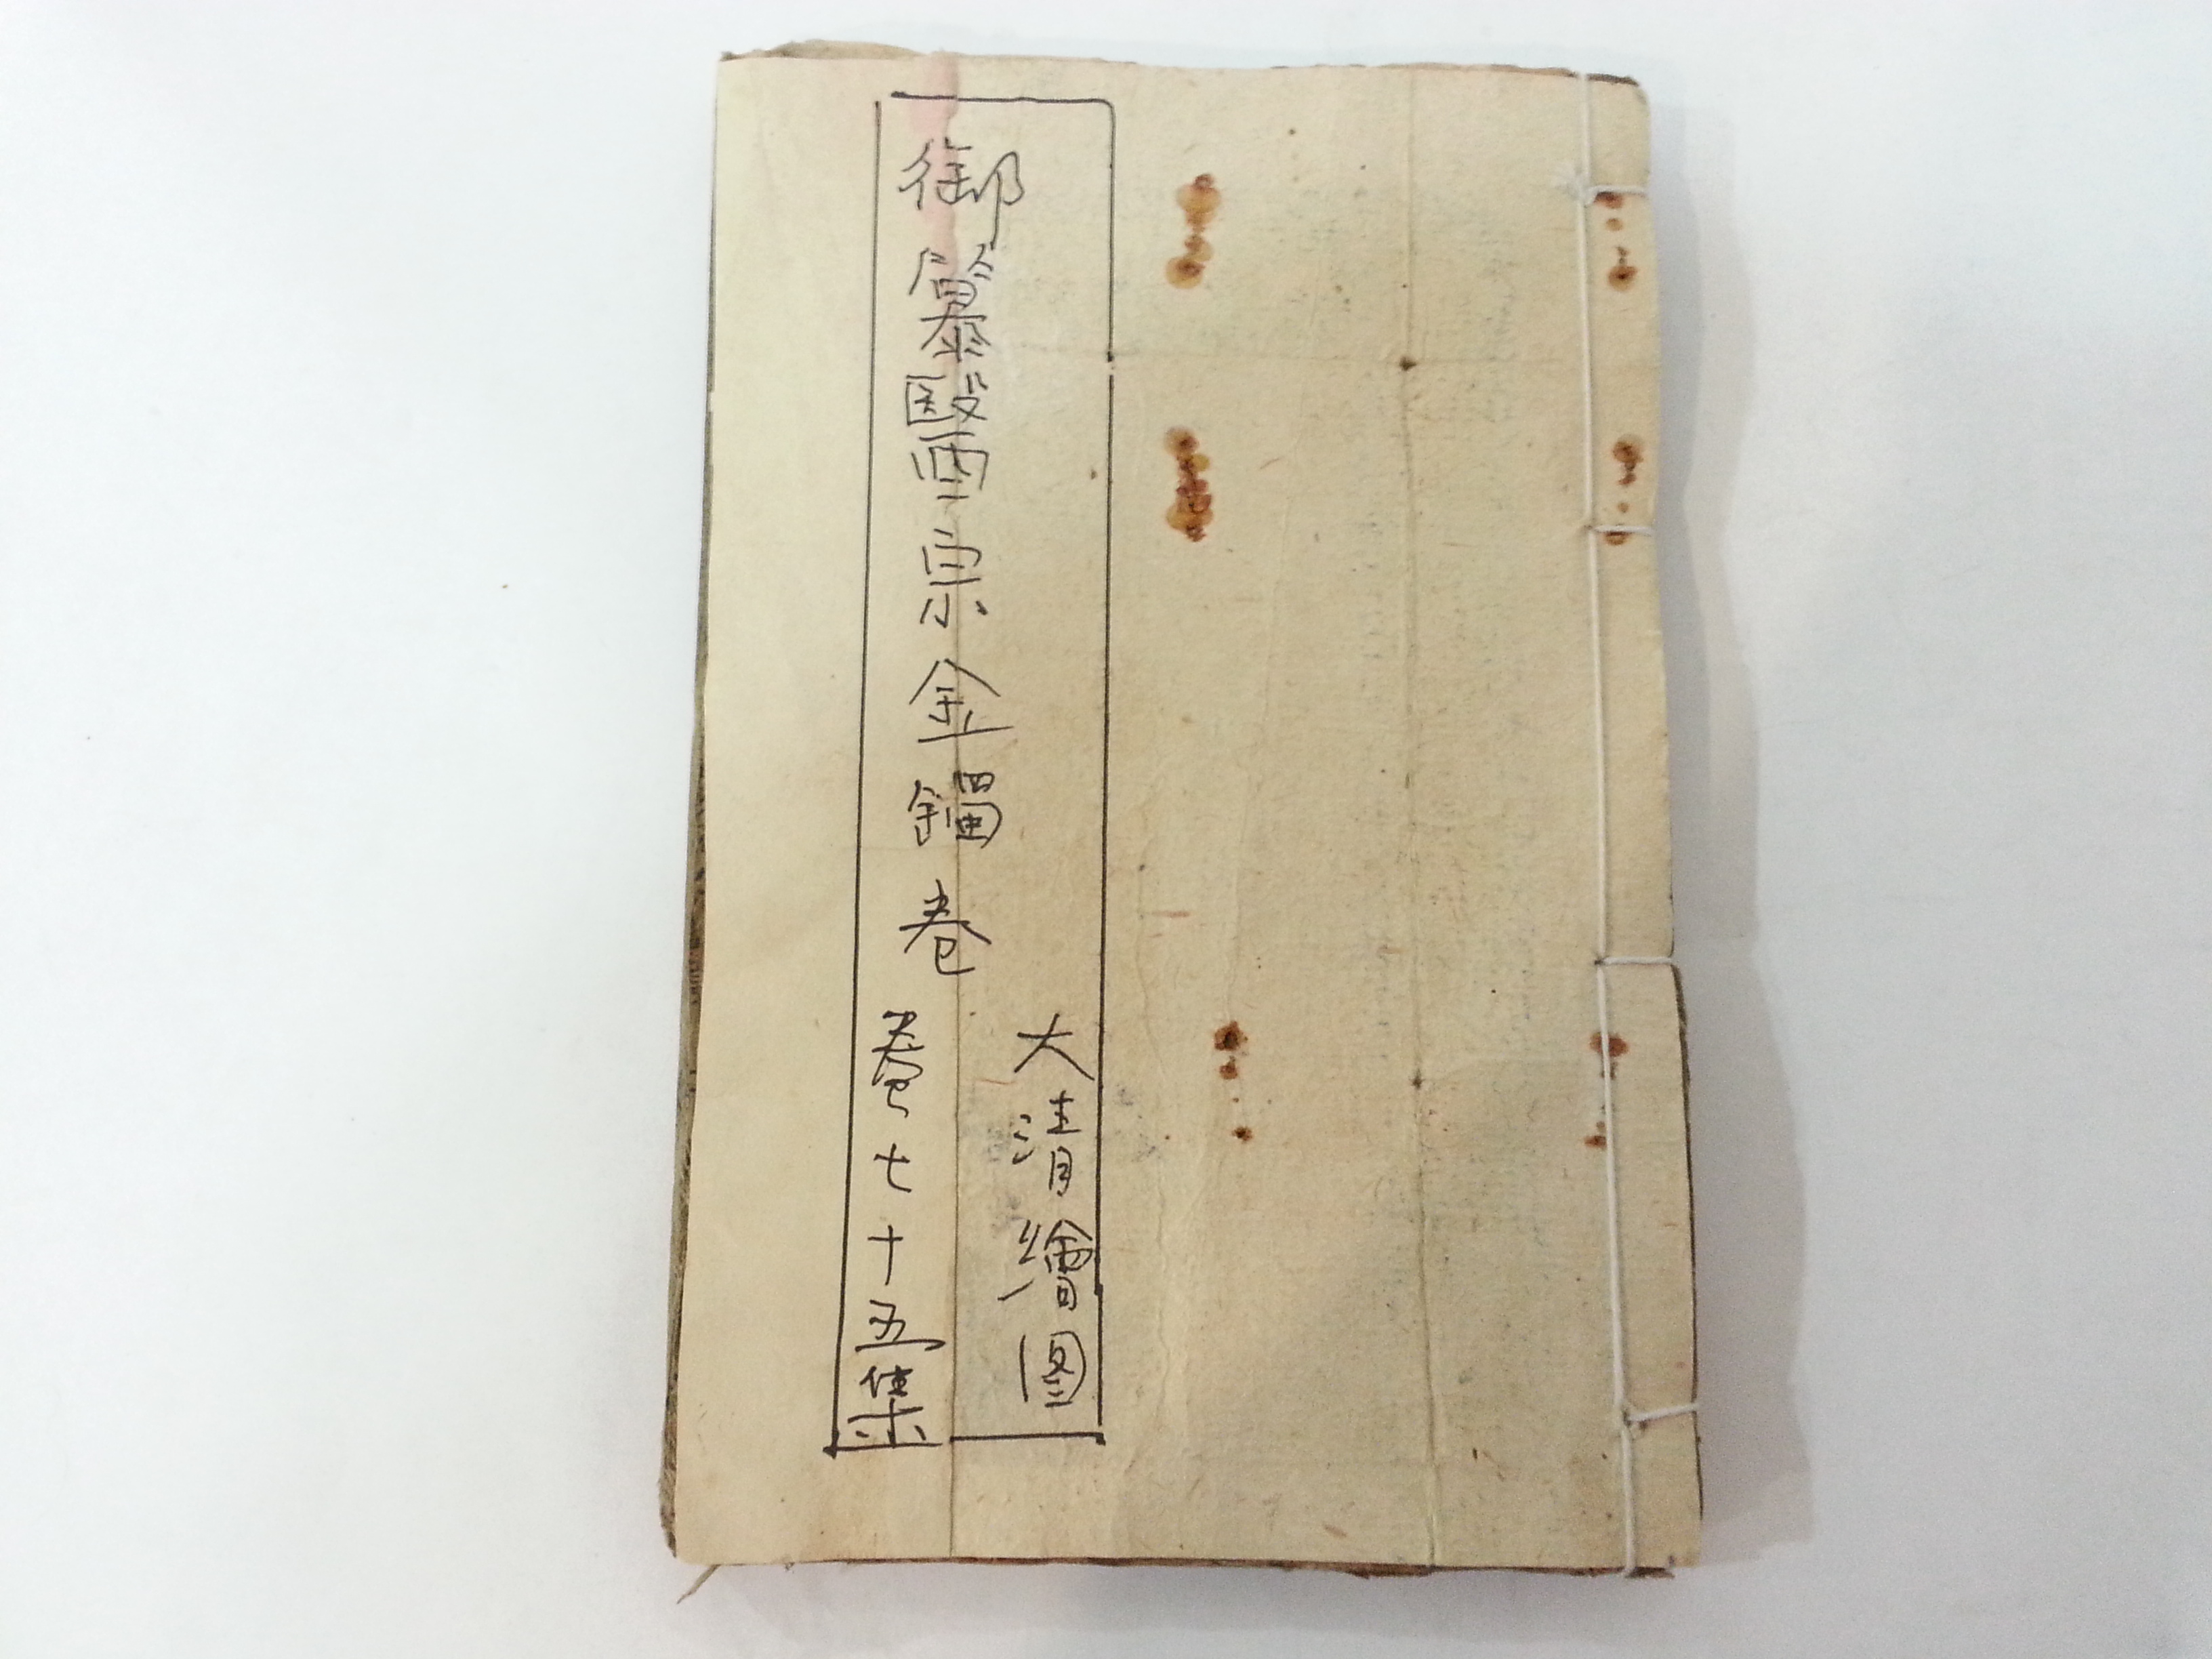 御纂醫宗金鑑卷
大清繪图
卷七十五集